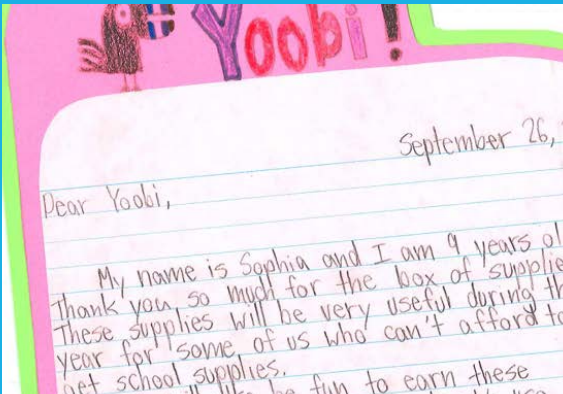 Yoobi!
September 26,
Dear Yoobi,
My name is Sophia and I am 9 years ol
Thank you so much for the box of supplie
These supplies will be very useful during th
year for some of us who can't afford to
get school supplies.
be fun to earn these